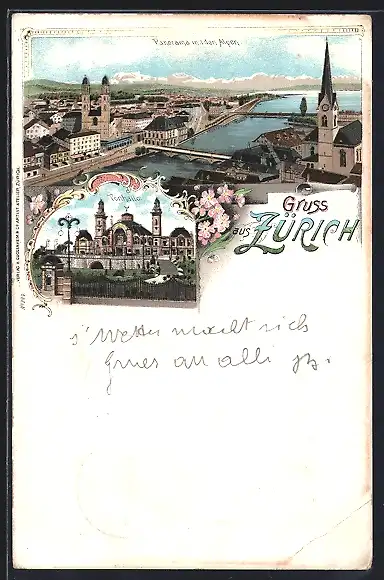 Panorama mit den Alpen
Tonhalle
Gruss
aus ZÜRICH
s'Wetter macht sich
Grues an alli